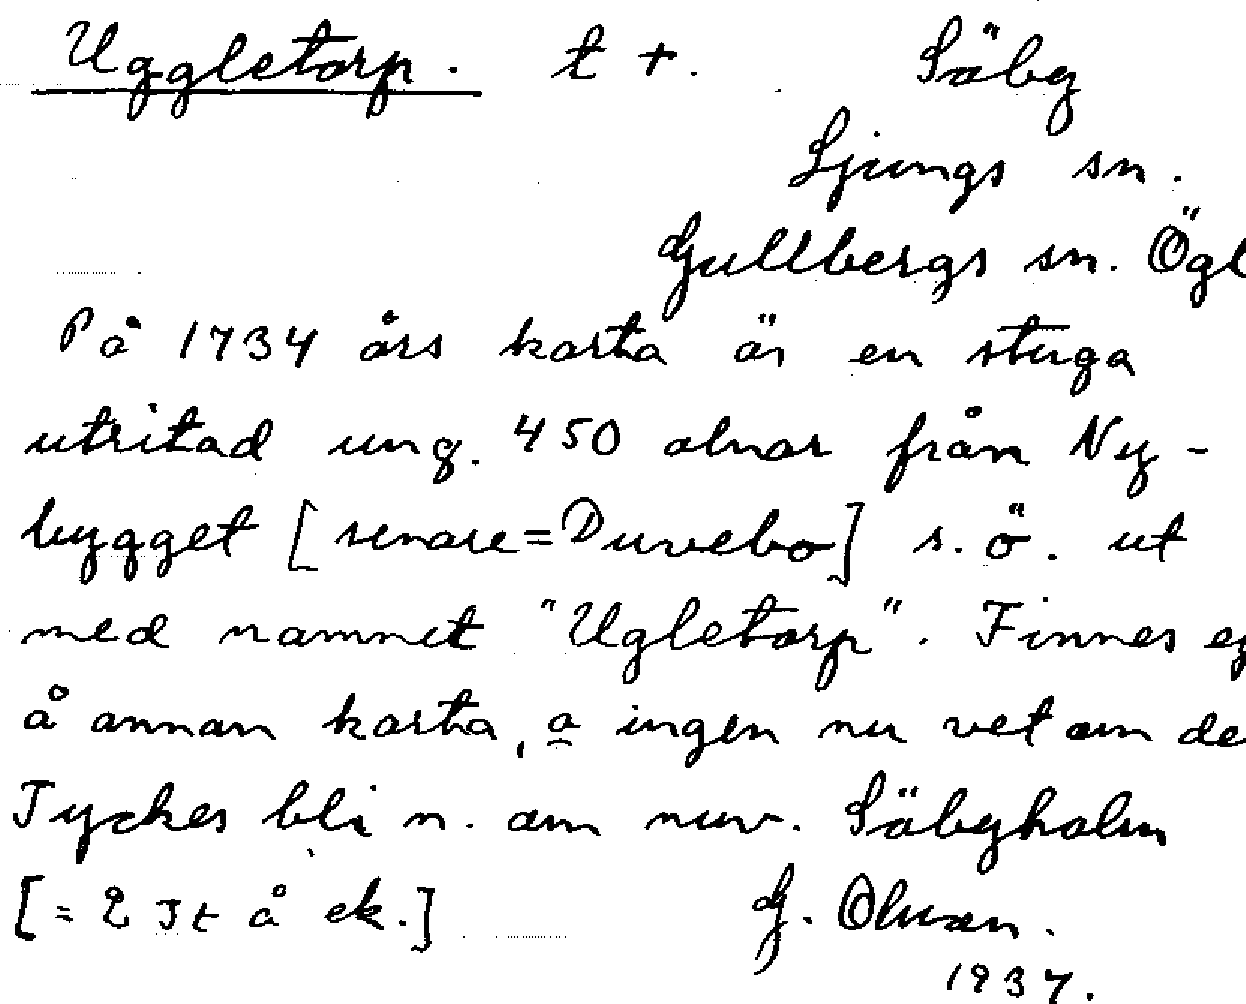 Uggletorp. t +. Säby
Ljungs sn.
Gullbergs sn. Ögl
På 1734 års karta är en stuga
utritad ung. 450 alnar från Ny-
bygget [senare=Duvebo] s.ö. ut
med namnet "Ugletorp". Finnes ej
å annan karta, o ingen nu vet om de
Tyckes bli n. om nuv. Säbyholm
[= 2 Jt å ek.] G. Olsson.
1937.